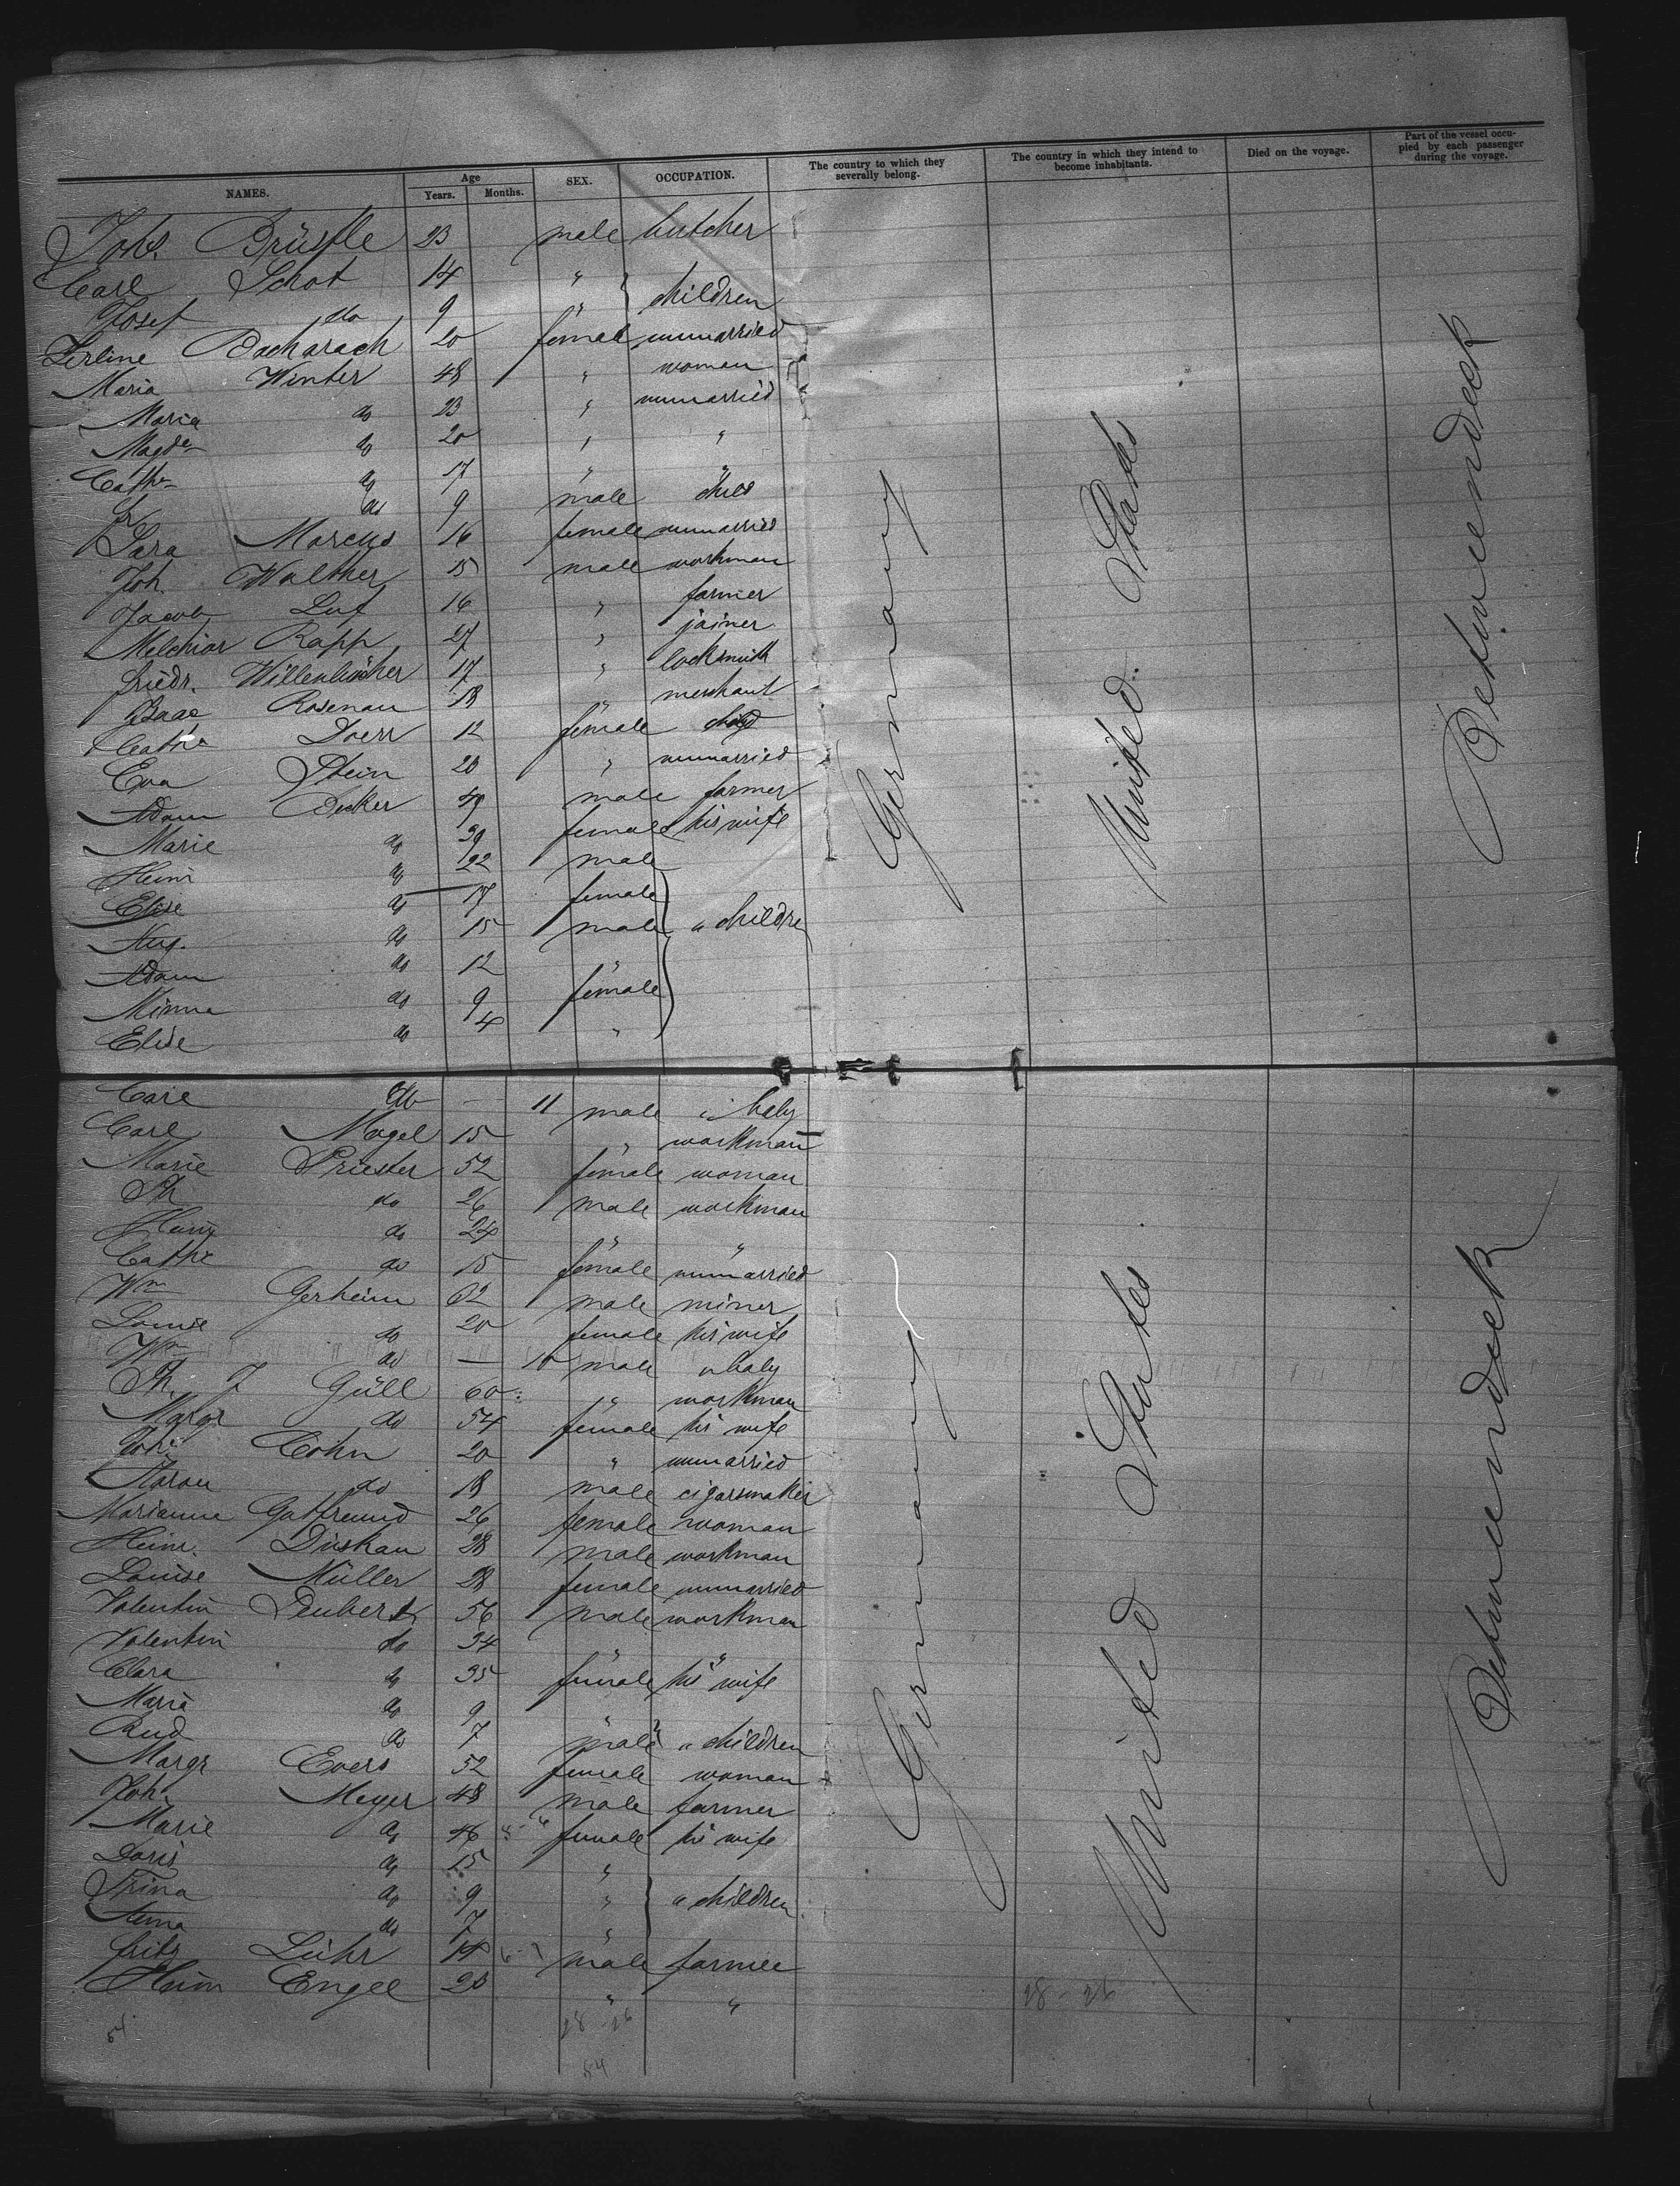 NAMES. Age Years. Months. SEX. OCCUPATION. The country to which they severally belong. The country in which they intend to become inhabitants. Died on the voyage. Part of the vessel occupied by each passenger during the voyage.
Joh. Brüstle 23 male butcher
Carl Schot 14 "
Josef do 9 " children
Bacharach 20 female unmarried
Maria Winter 48 " woman
Maria do 23 " unmarried
Magda do 20 " "
Cathr do 17 " "
do 9 male child
Sara Marcus 16 female unmarried
Joh. Walther 15 male workman
Jacob Luf 16 " farmer
Melchior Rapp 27 " joiner
Friedr. 17 " locksmith
Isaac Rosenau 18 " merchant
Catha Doerr 12 female child
Eva Stein 23 " unmarried
Adam Decker 49 male farmer
Marie do 39 female his wife
Heinr do 22 male
Elise do 17 female
Aug. do 15 male " children
Adam do 12 "
Minna do 9 female
Elise do 4 "
Germany United States Between deck
Carl do — 11 male " baby
Carl Magel 15 " workman
Marie Priester 52 female woman
Ph do 26 male workman
Heinr do 24 " "
Cathr do 15 female unmarried
Wm Gerheim 62 male miner
Louise do 20 female his wife
Wm do — 10 male " baby
Ph. J Güll 60 " workman
Margr do 54 female his wife
Joh. Cohn 20 " unmarried
Aaron do 18 male cigarsmaker
Marianne Gutfreund 26 female woman
Heinr. Diskau 28 male workman
Louise Müller 28 female unmarried
Valentin Deubert 56 male workman
Valentin do 34 " "
Clara do 35 female his wife
Maria do 9 "
Rud do 7 male " children
Margr Evers 52 female woman
Joh. Meyer 48 male farmer
Marie do 46 female his wife
Doris do 15 "
Trina do 9 " " children
Anna do 7 "
Fritz Lühr 14 male farmer
Heinr Engel 23 " "
Germany United States Between deck
54 28-26 28-26
54